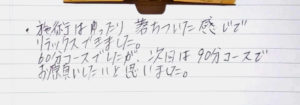 ・施術はゆったり、落ちついた感じで
リラックスできました。
60分コースでしたが、次回は90分コースで
お願いしたいと思いました。